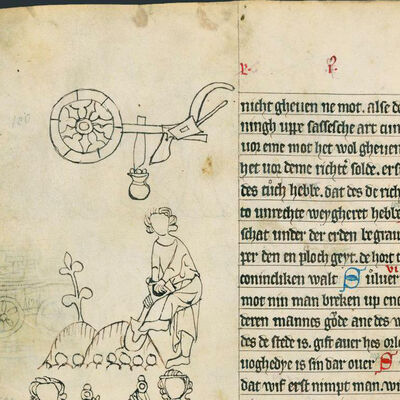 nicht gheuen ne mot. alse de
ningh upr sassesche art
uor eine mot het wol gheuen
het uor deme richtͤ solde. ers
des tuͦch hebbe. dat des de rich
to unrechte weygheret hebbe
schat under der erden begrau
per den en ploch geyt. de hort t
conincliken walt Suͦluer VI
mot nin man breken up
deren mannes goͤde ane des w
des de stede is. gift auer hes orlo
uoghedye is sin dar ouer S
dat wif erst nimpt man. wi